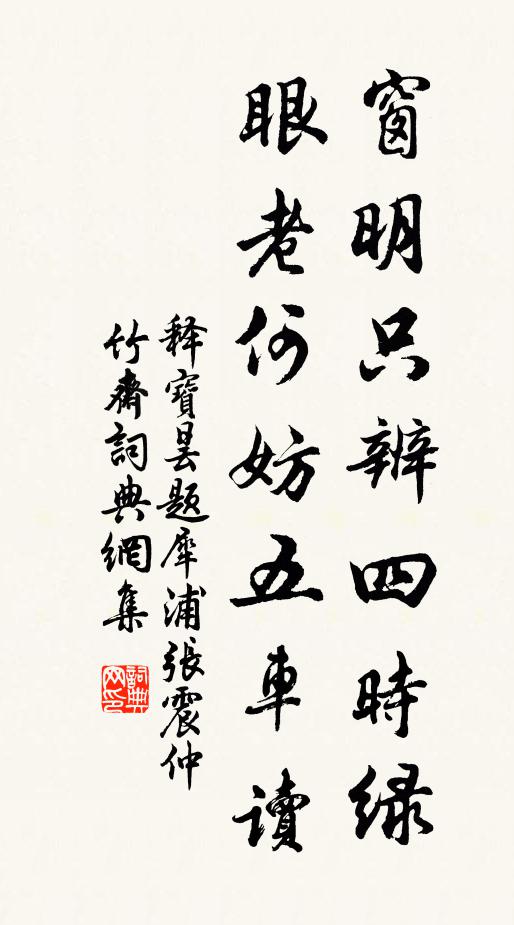 窗明只辨四時緑
眼老何妨五車讀
释寶昙题犀浦張震仲
竹齋詞典網集
詞典网印